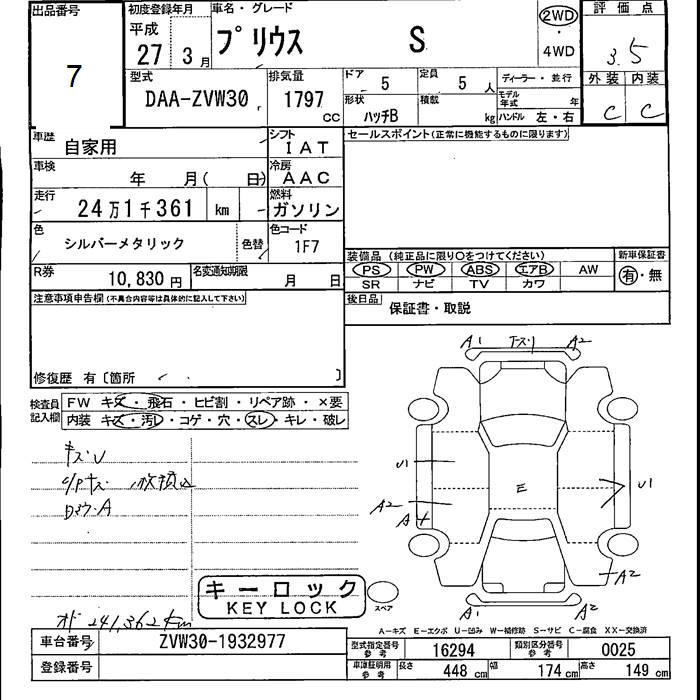 出品番号
7
初度登録年月
平成
27 3 月
車名・グレード
プリウス S
2WD
・
4WD
評価点
3.5
外装 内装
C C
型式
DAA-ZVW30
排気量
1797 CC
ドア 5
定員 5 人
形状
ハッチB
積載 kg
ディーラー・並行
モデル
年式 年
ハンドル 左・右
車歴
自家用
シフト
IAT
セールスポイント(正常に機能するものに限ります)
車検
年 月( 日)
冷房
AAC
走行
24万1千361 km
燃料
ガソリン
色
シルバーメタリック
色替
色コード
1F7
装備品(純正品に限り○をつけてください)
PS PW ABS エアB AW
SR ナビ TV カワ
新車保証書
有・無
R券
10,830 円
名変通知期限
月 日
後日品
保証書・取説
注意事項申告欄(不具合内容等は具体的に記入して下さい)
修復歴 有〔箇所 〕
検査員
記入欄
FW キズ・飛石・ヒビ割・リペア跡・×要
内装 キズ・汚レ・コゲ・穴・スレ・キレ・破レ
キズ・U
D37・A
A1 A2
U1
A2
A
E
U1
A2
A1 A2
スペア
キーロック
KEY LOCK
オド 241,362km
A－キズ E－エクボ U－凹み W－補修跡 S－サビ C－腐食 XX－交換済
車台番号
ZVW30-1932977
型式指定番号
参考
16294
類別区分番号
参考
0025
登録番号
車庫証明用
参考
長さ 448 cm
幅 174 cm
高さ 149 cm